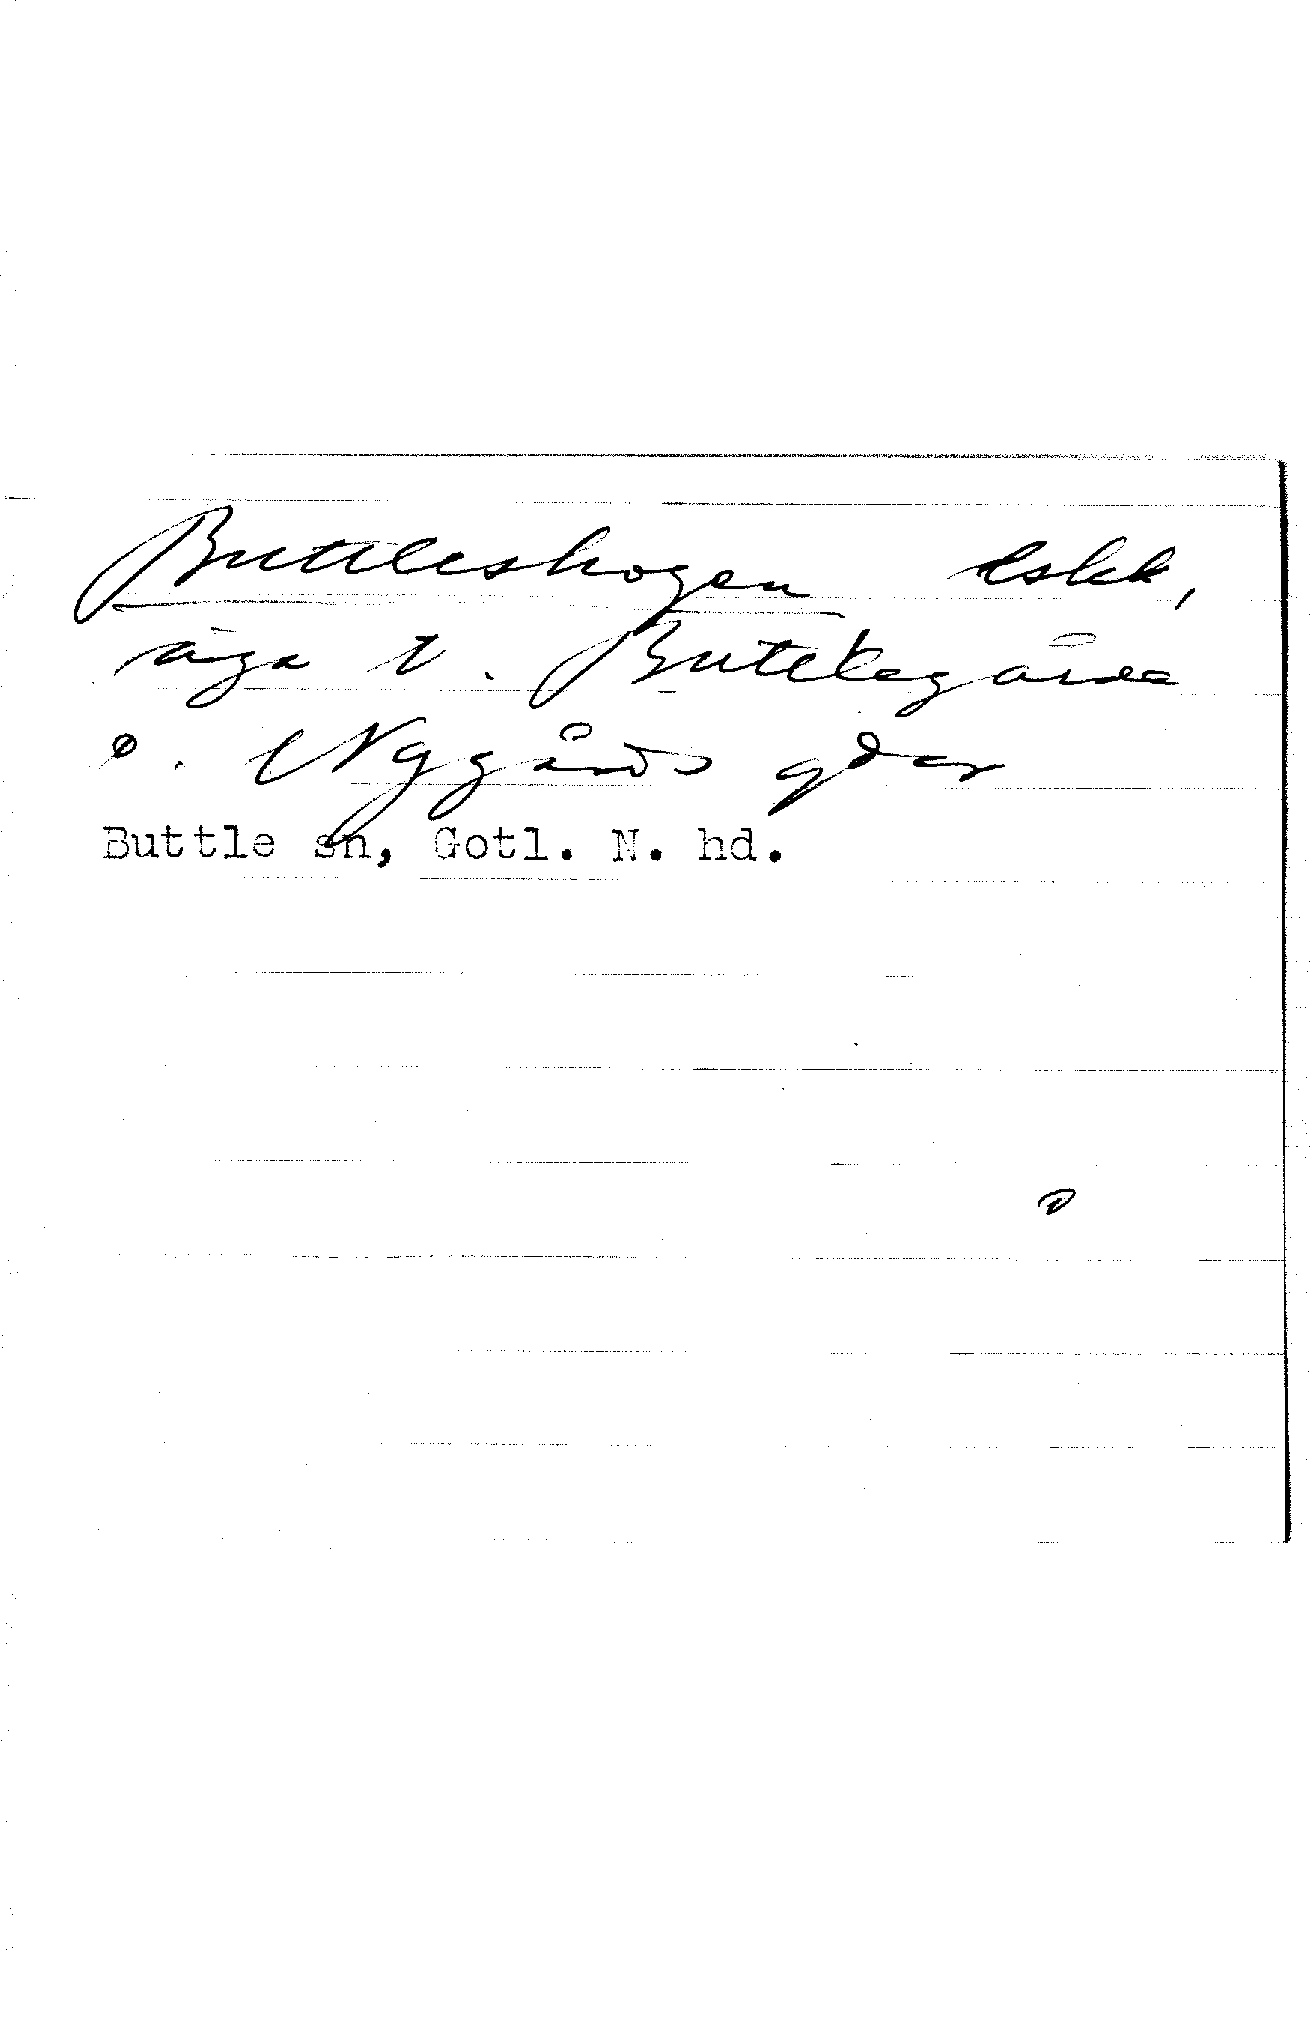 Buttleskogen eskk,
äga t. Buttlegårda
o. Nygårds gdar
Buttle sn, Gotl. N. hd.